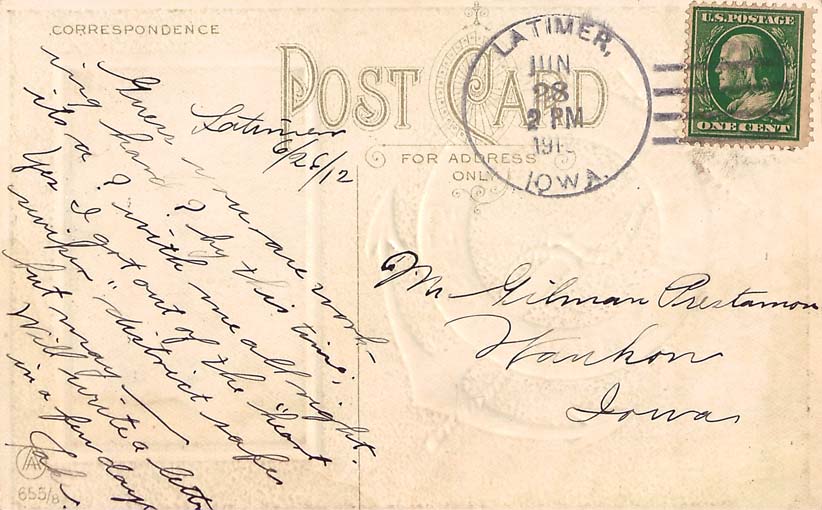 CORRESPONDENCE
POST CARD
FOR ADDRESS
ONLY
LATIMER,
JUN
28
2 PM
191
IOWA.
U.S. POSTAGE
ONE CENT
Latimer
6/26/12
Guess you are work-
ing hard ? by this time;
its a ? with me all right.
Yes I got out of the "heart
" district safe
but may
Will write a letter
in a few days
Mr Gilman Prestamon
Waukon
Iowa
AA
655/8